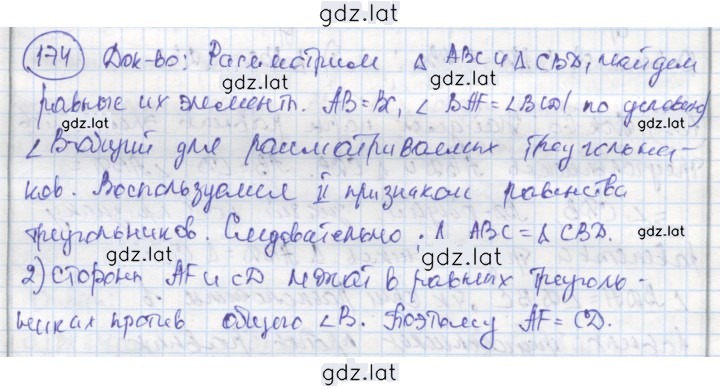 gdz.lat
174 Док-во: Рассмотрим Δ ABC и Δ CBD, найдем
gdz.lat
равные их элемент. AB=BC, ∠ BAF=∠BCD( по условию)
gdz.lat gdz.lat
∠B-общий для рассматриваемых треугольни-
ков. Воспользуемся II признаком равенства
gdz.lat
треугольников. Следовательно: Δ ABC = Δ CBD.
gdz.lat
2) стороны AF и CD лежат в равных треуголь-
gdz.lat
никах против общего ∠B. Поэтому AF = CD.
gdz.lat
gdz.lat